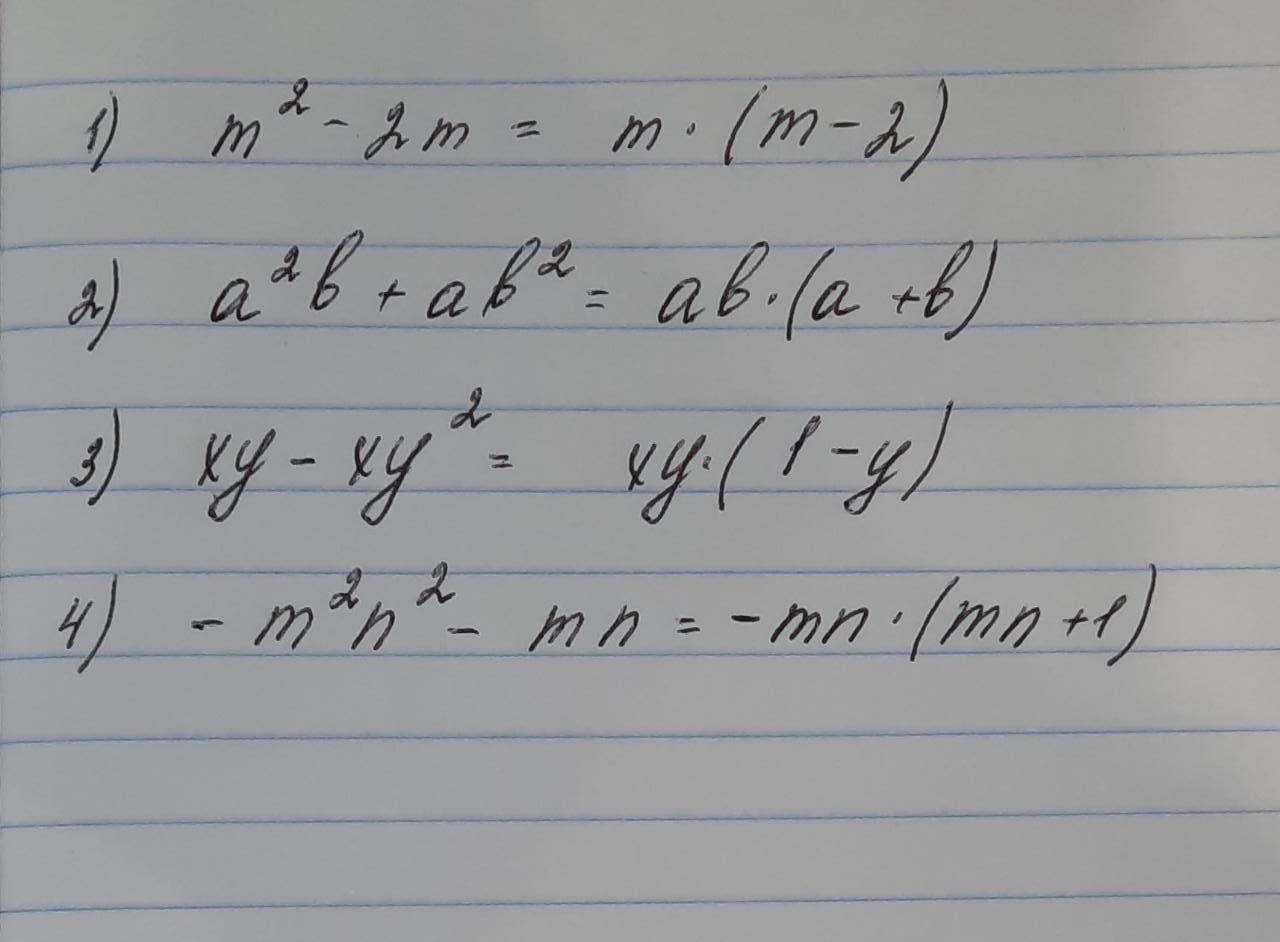 1) m² - 2m = m · (m - 2)
2) a²b + ab² = ab · (a + b)
3) xy - xy² = xy · (1 - y)
4) - m²n² - mn = - mn · (mn + 1)